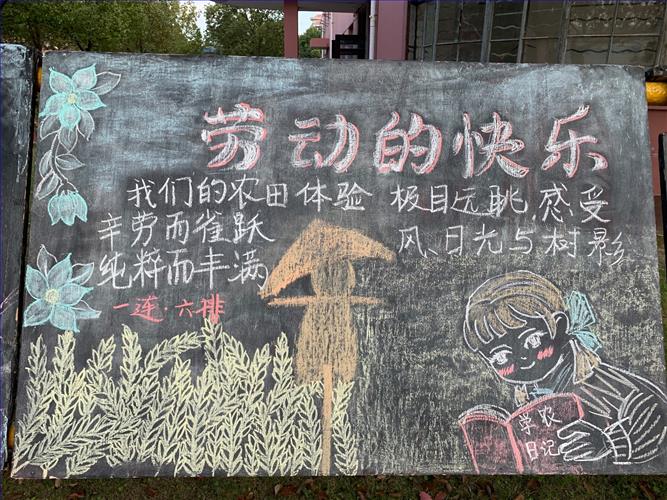 劳动的快乐
我们的农田体验
辛劳而雀跃
纯粹而丰满
一连·六排
极目远眺,感受
风、日光与树影
学农
日记